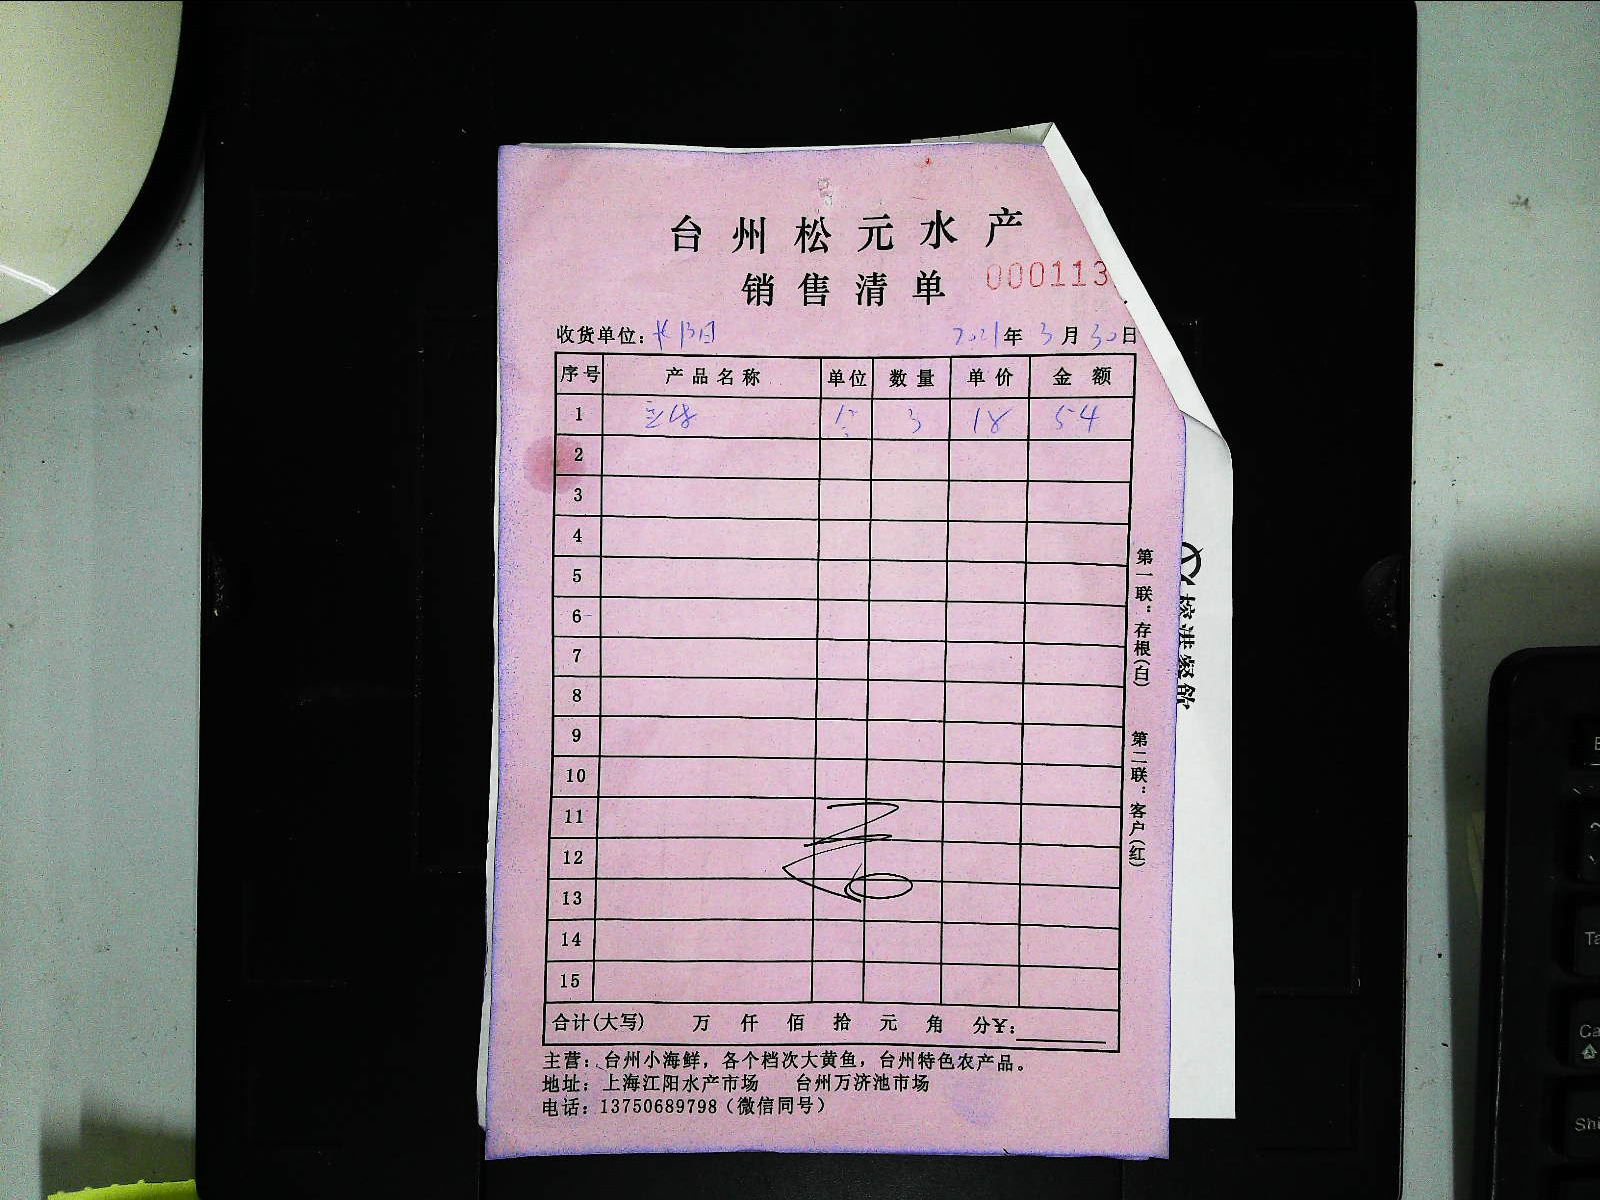 台州松元水产
销售清单 000113
收货单位： 2021年3月30日
序号 产品名称 单位 数量 单价 金额
1 3 18 54
2
3
4
5
6
7
8
9
10
11
12
13
14
15
合计(大写) 万 仟 佰 拾 元 角 分¥：
主营：台州小海鲜，各个档次大黄鱼，台州特色农产品。
地址：上海江阳水产市场 台州万济池市场
电话：13750689798（微信同号）
第一联：存根(白)
第二联：客户(红)